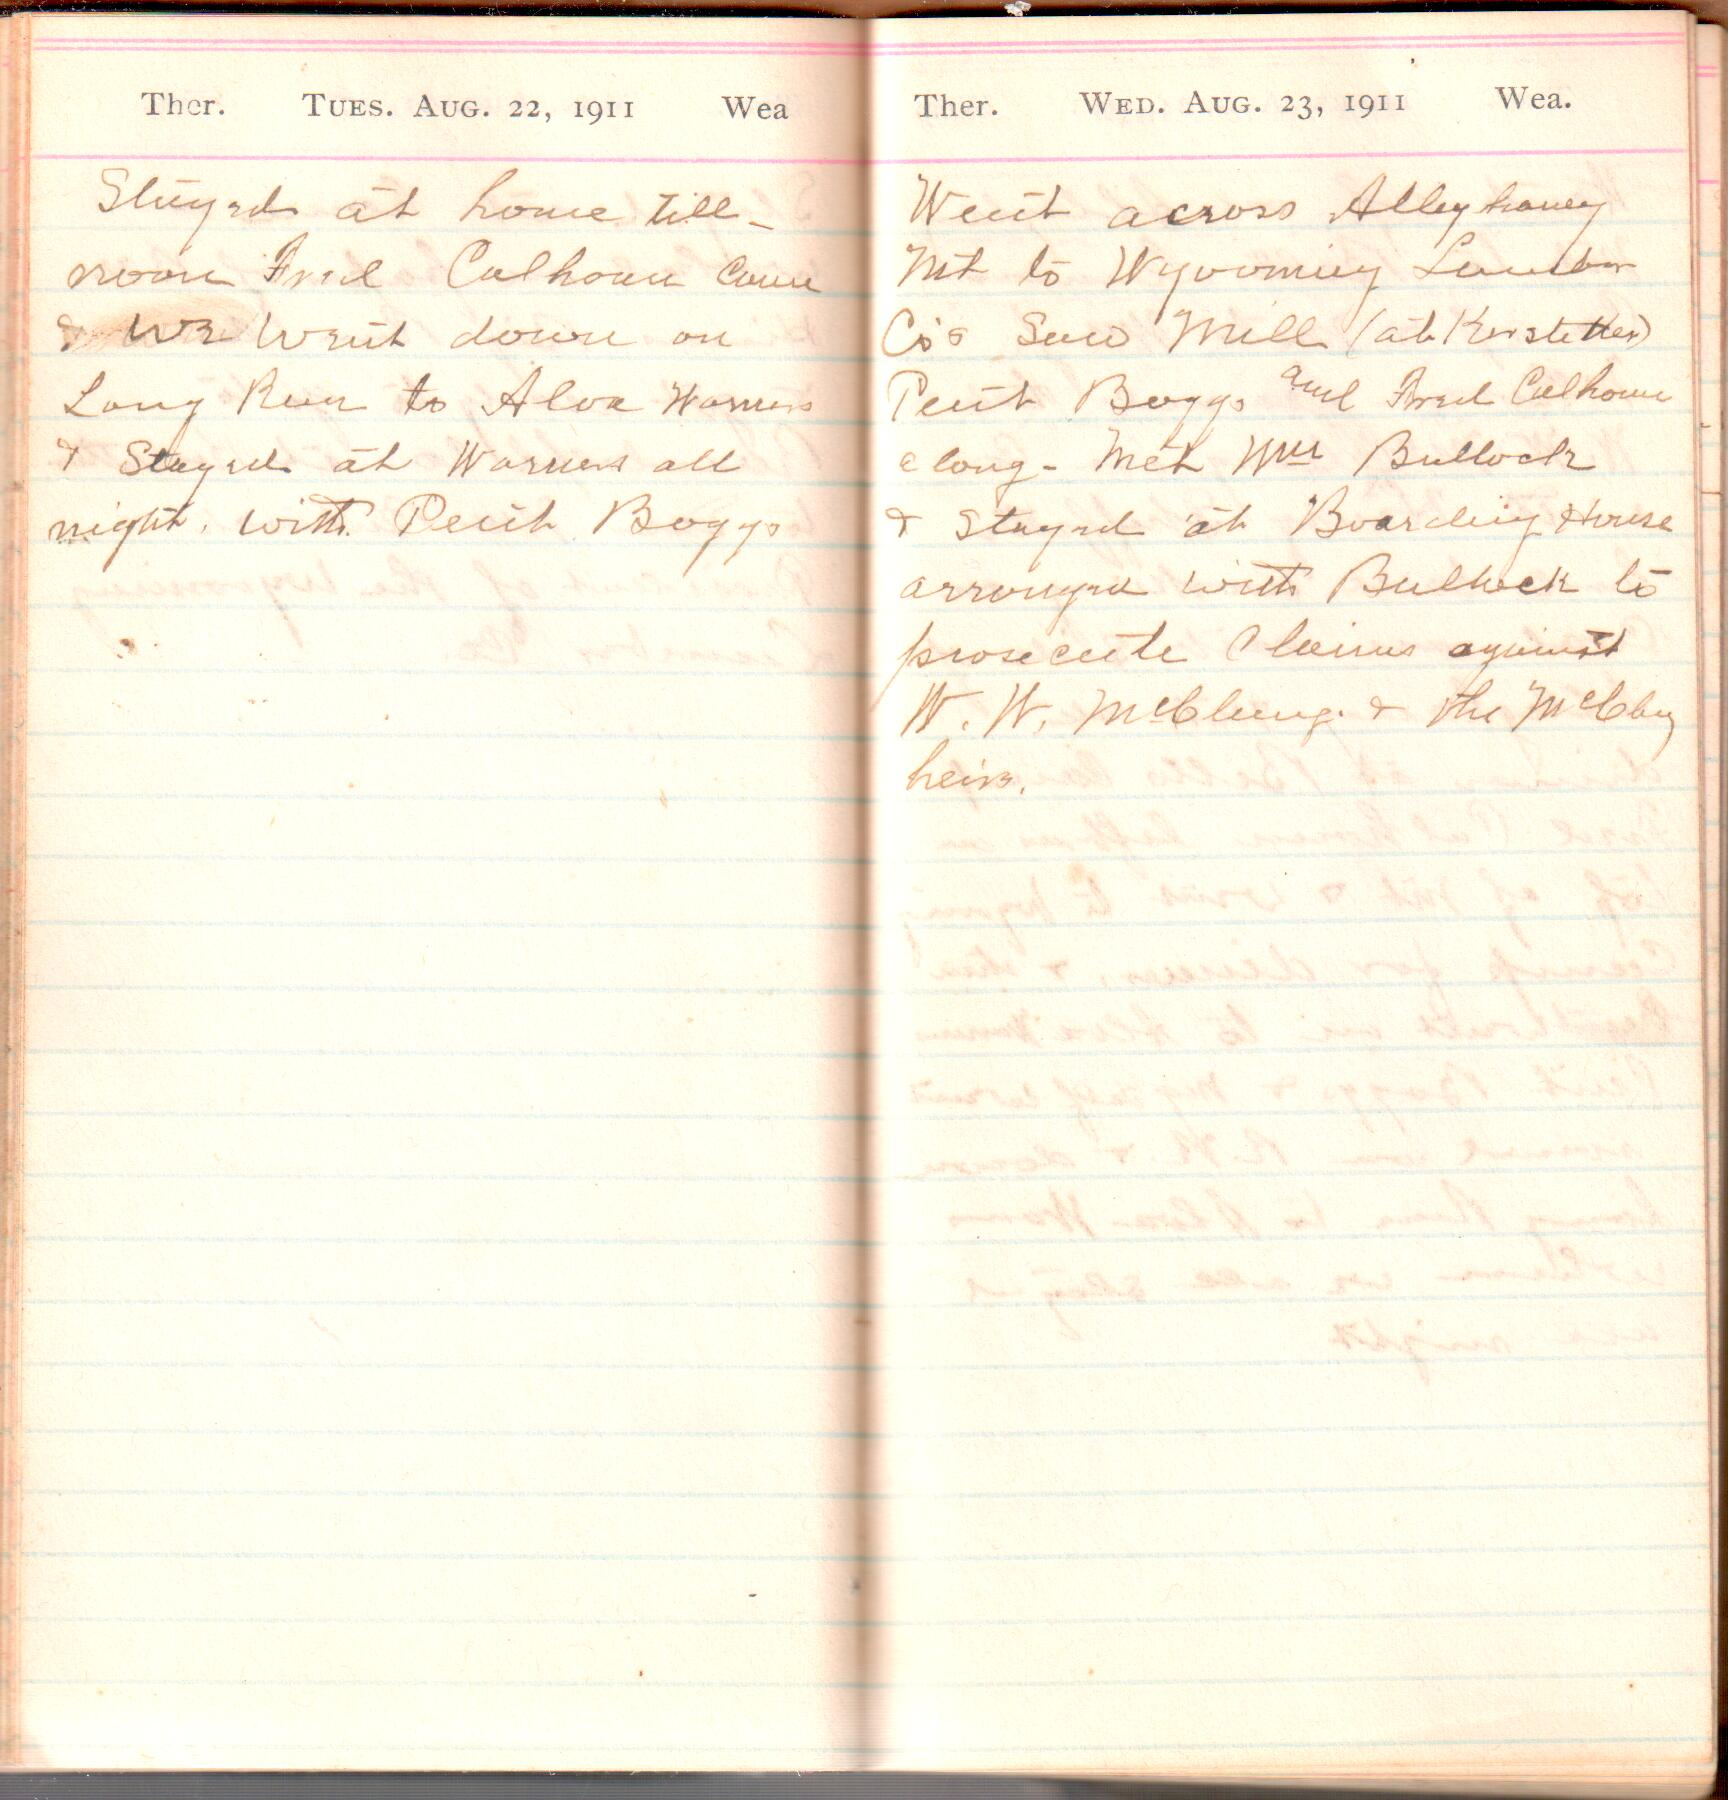 Ther. TUES. AUG. 22, 1911 Wea
Stayed at home till
noon Fred Calhoun came
& we went down on
Long Run to Alva Warners
& Stayed at Warners all
night. with Peut Boggs
Ther. WED. AUG. 23, 1911 Wea.
Went across Alleghaney
Mt to Wyooming Lumber
Co's Saw Mill (at Kerstetter)
Peut Boggs and Fred Calhoun
along - Met Wm Bullock
& Stayed at Boarding House
arranged with Bullock to
prosecute Claims against
W. W. McClung & the McClung
heirs.